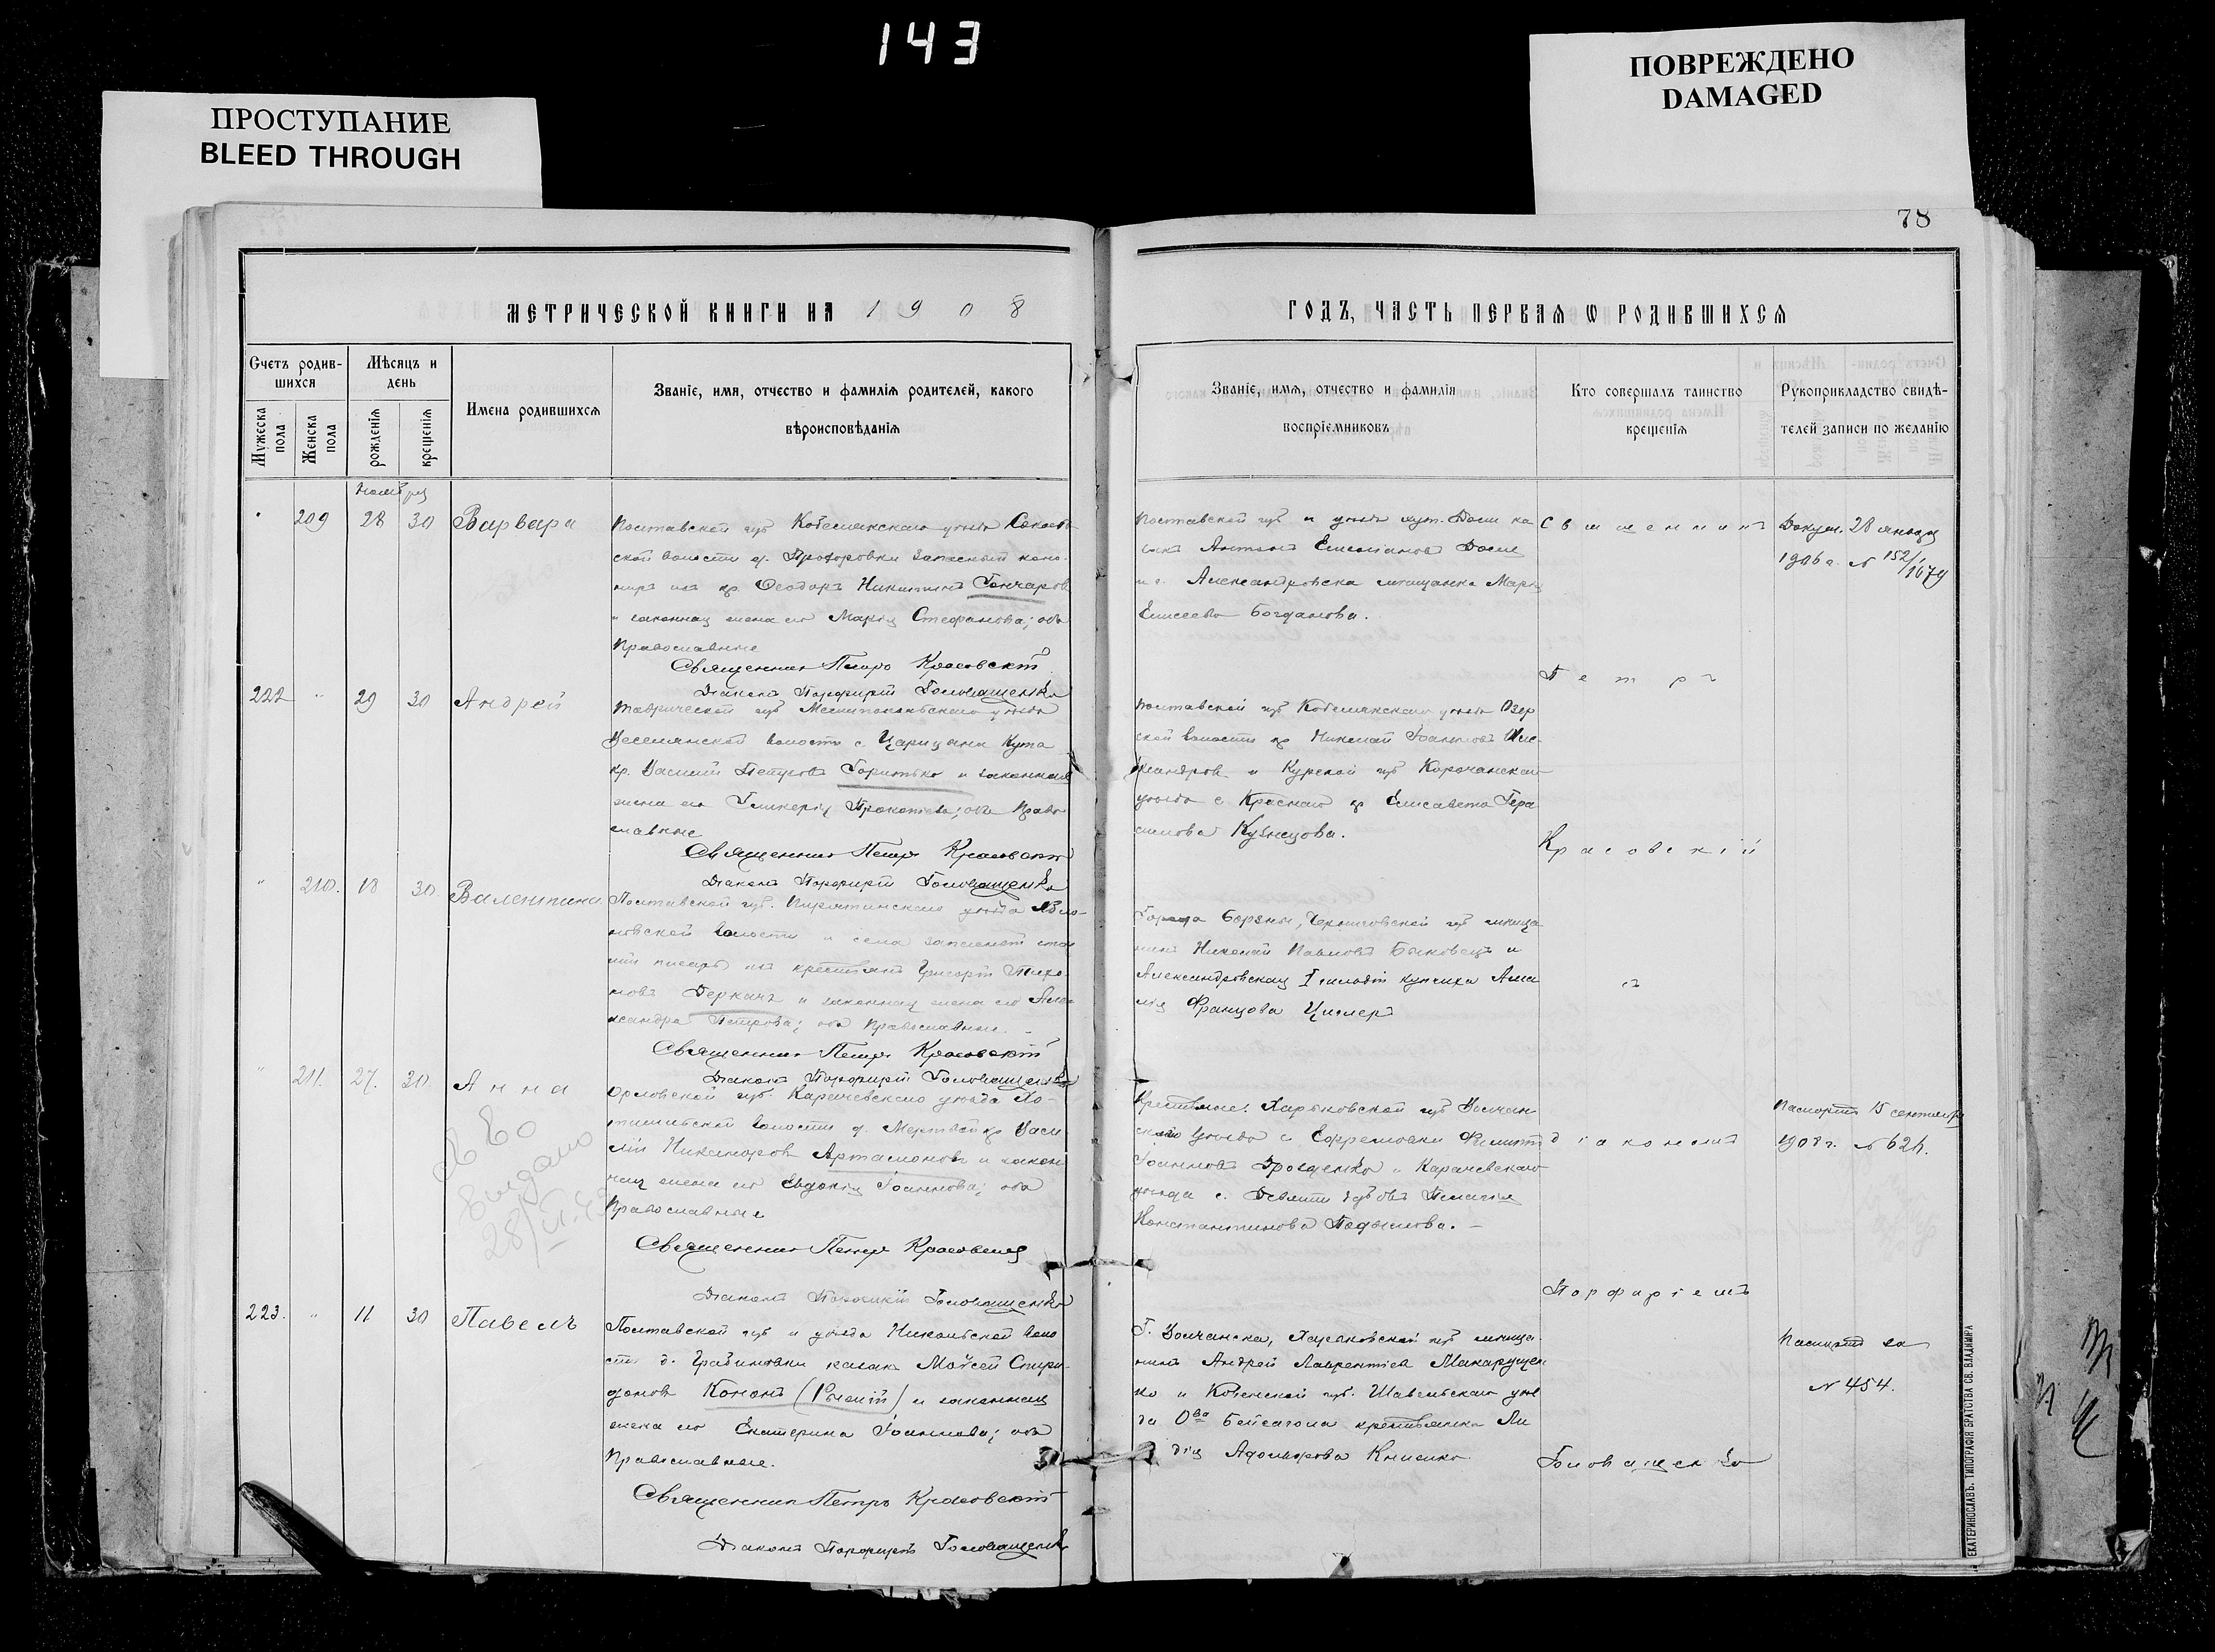 143
ПРОСТУПАНИЕ
BLEED THROUGH
ПОВРЕЖДЕНО
DAMAGED
78
МЕТРИЧЕСКОЙ КНИГИ НА 1908
ГОДЪ, ЧАСТЬ ПЕРВАЯ Ѡ РОДИВШИХСЯ
Счетъ родив-
шихся
Мѣсяцъ и
день
Мужеска
пола
Женска
пола
рожденія
крещенія
Имена родившихся
Званіе, имя, отчество и фамилія родителей, какого
вѣроисповѣданія
Званіе, имя, отчество и фамилія
воспріемниковъ
Кто совершалъ таинство
крещенія
Рукоприкладство свидѣ-
телей записи по желанію
Ноября
209 28 30 Варвара
Полтавской губ Кобелякскаго уѣзда
ской волости д. Прохоровки запасный кано-
ниръ изъ кр. Ѳеодоръ Никитинъ Гончаровъ
и законная жена его Марія Стефанова; оба
Православные
Священникъ Петръ Красовскій
Діаконъ Порфирій Головащенко
Полтавской губ и уѣзда хут.
Антонъ Емеліановъ
и г. Александровска мѣщанка Марія
Елисеева Богданова.
Священникъ
Докум. 28 января
1906 г. № 152/1679
222 " 29 30 Андрей
Таврической губ Мелитопольскаго уѣзда
Веселянской волости с. Царицына Кута
кр. Василій Петровъ Горитько и законная
жена его Гликерія Прокопіева; оба Право
славные
Священникъ Петръ Красовскій
Діаконъ Порфирій Головащенко
Петръ
Полтавской губ Кобелякскаго уѣзда Озер
ской волости кр Николай Іоанновъ Але-
ксандровъ и Курской губ Корочанскаго
уѣзда с. Краснаго кр Елисавета Гера
симова Кузнецова.
Красовскій
" 210. 18 30 Валентина
Полтавской губ. Пирятинскаго уѣзда Ябло-
новской волости и села запасный стар
шій писарь изъ крестьянъ Григорій Тихо
новъ Деркачъ и законная жена его Але
ксандра Петрова; оба Православные. -
Священникъ Петръ Красовскій
Діаконъ Порфирій Головащенко
Города Борзны, Черниговской губ мѣща
нинъ Николай Павловъ Быковецъ и
Александровская I гильдіи купчиха Ама
лія Францова Циглеръ
съ
" 211. 27. 30. Анна
св во
выдано
28/VI.
Орловской губ. Карачевскаго уѣзда Хо-
тимльской волости д. Мертвой кр Васи
лій Никаноровъ Артамоновъ и закон
ная жена его Евдокія Іоаннова; оба
Православные
Священникъ Петръ Красовскій
Діаконъ Порфирій Головащенко
Крестьяне: Харьковской губ Волчан-
скаго уѣзда с. Ефремовки Филиппъ
Іоанновъ Дрозденко и Карачевскаго
уѣзда с. Девяти Дубовъ Пелагія
Константинова
діакономъ
Паспортъ 15 сентября
1908 г. № 624.
Порфиріемъ
223. " 11 30 Павелъ
Полтавской губ и уѣзда Никольской воло
сти д. Грабиновки казакъ Моѵсей Спири-
доновъ Кононъ и законная
жена его Екатерина Іоаннова; оба
Православные.
Священникъ Петръ Красовскій
Діаконъ Порфирій Головащенко
Г. Волчанска, Харьковской губ мѣща-
нинъ Андрей Лаврентіевъ Макарущен
ко и Ковенской губ. Шавельскаго уѣз
да О-ва Бейсагола крестьянка Ли
дія Адольфова
Головащенко
Паспортъ за
№ 454.
ЕКАТЕРИНОСЛАВЪ. ТИПОГРАФІЯ БРАТСТВА СВ. ВЛАДИМІРА